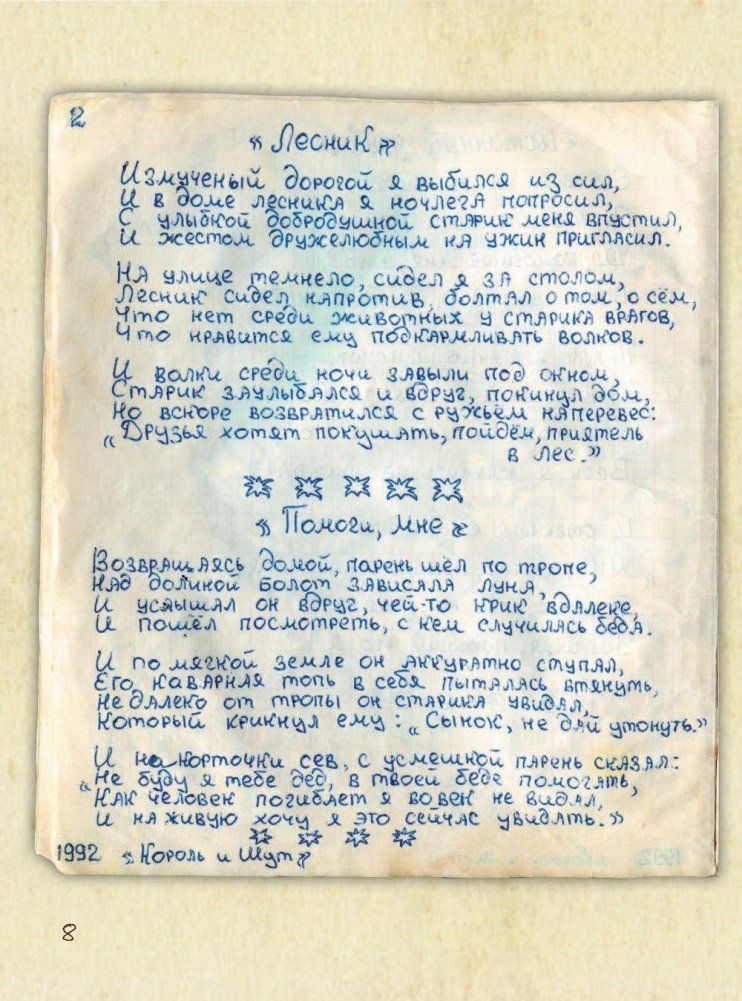 2
« Лесник »
Измученый дорогой я выбился из сил,
И в доме лесника я ночлега попросил,
С улыбкой добродушной старик меня впустил,
И жестом дружелюбным на ужин пригласил.
На улице темнело, сидел я за столом,
Лесник сидел напротив, болтал о том, о сём,
Что нет среди животных у старика врагов,
Что нравится ему подкармливать волков.
И волки среди ночи завыли под окном,
Старик заулыбался и вдруг, покинул дом,
Но вскоре возвратился с ружьём наперевес:
„Друзья хотят покушать, пойдём, приятель
в лес.”
« Помоги, мне »
Возвращаясь домой, парень шёл по тропе,
Над долиной болот зависала луна,
И услышал он вдруг, чей-то крик вдалеке,
И пошёл посмотреть, с кем случилась беда.
И по мягкой земле он аккуратно ступал,
Его каварная топь в себя пыталась втянуть,
Не далеко от тропы он старика увидал,
Который крикнул ему: „Сынок, не дай утонуть.”
И на корточки сев, с усмешкой парень сказал:
„Не буду я тебе дед, в твоей беде помогать,
Как человек погибает я вовек не видал,
И на живую хочу я это сейчас увидать.”
1992 « Король и Шут »
8